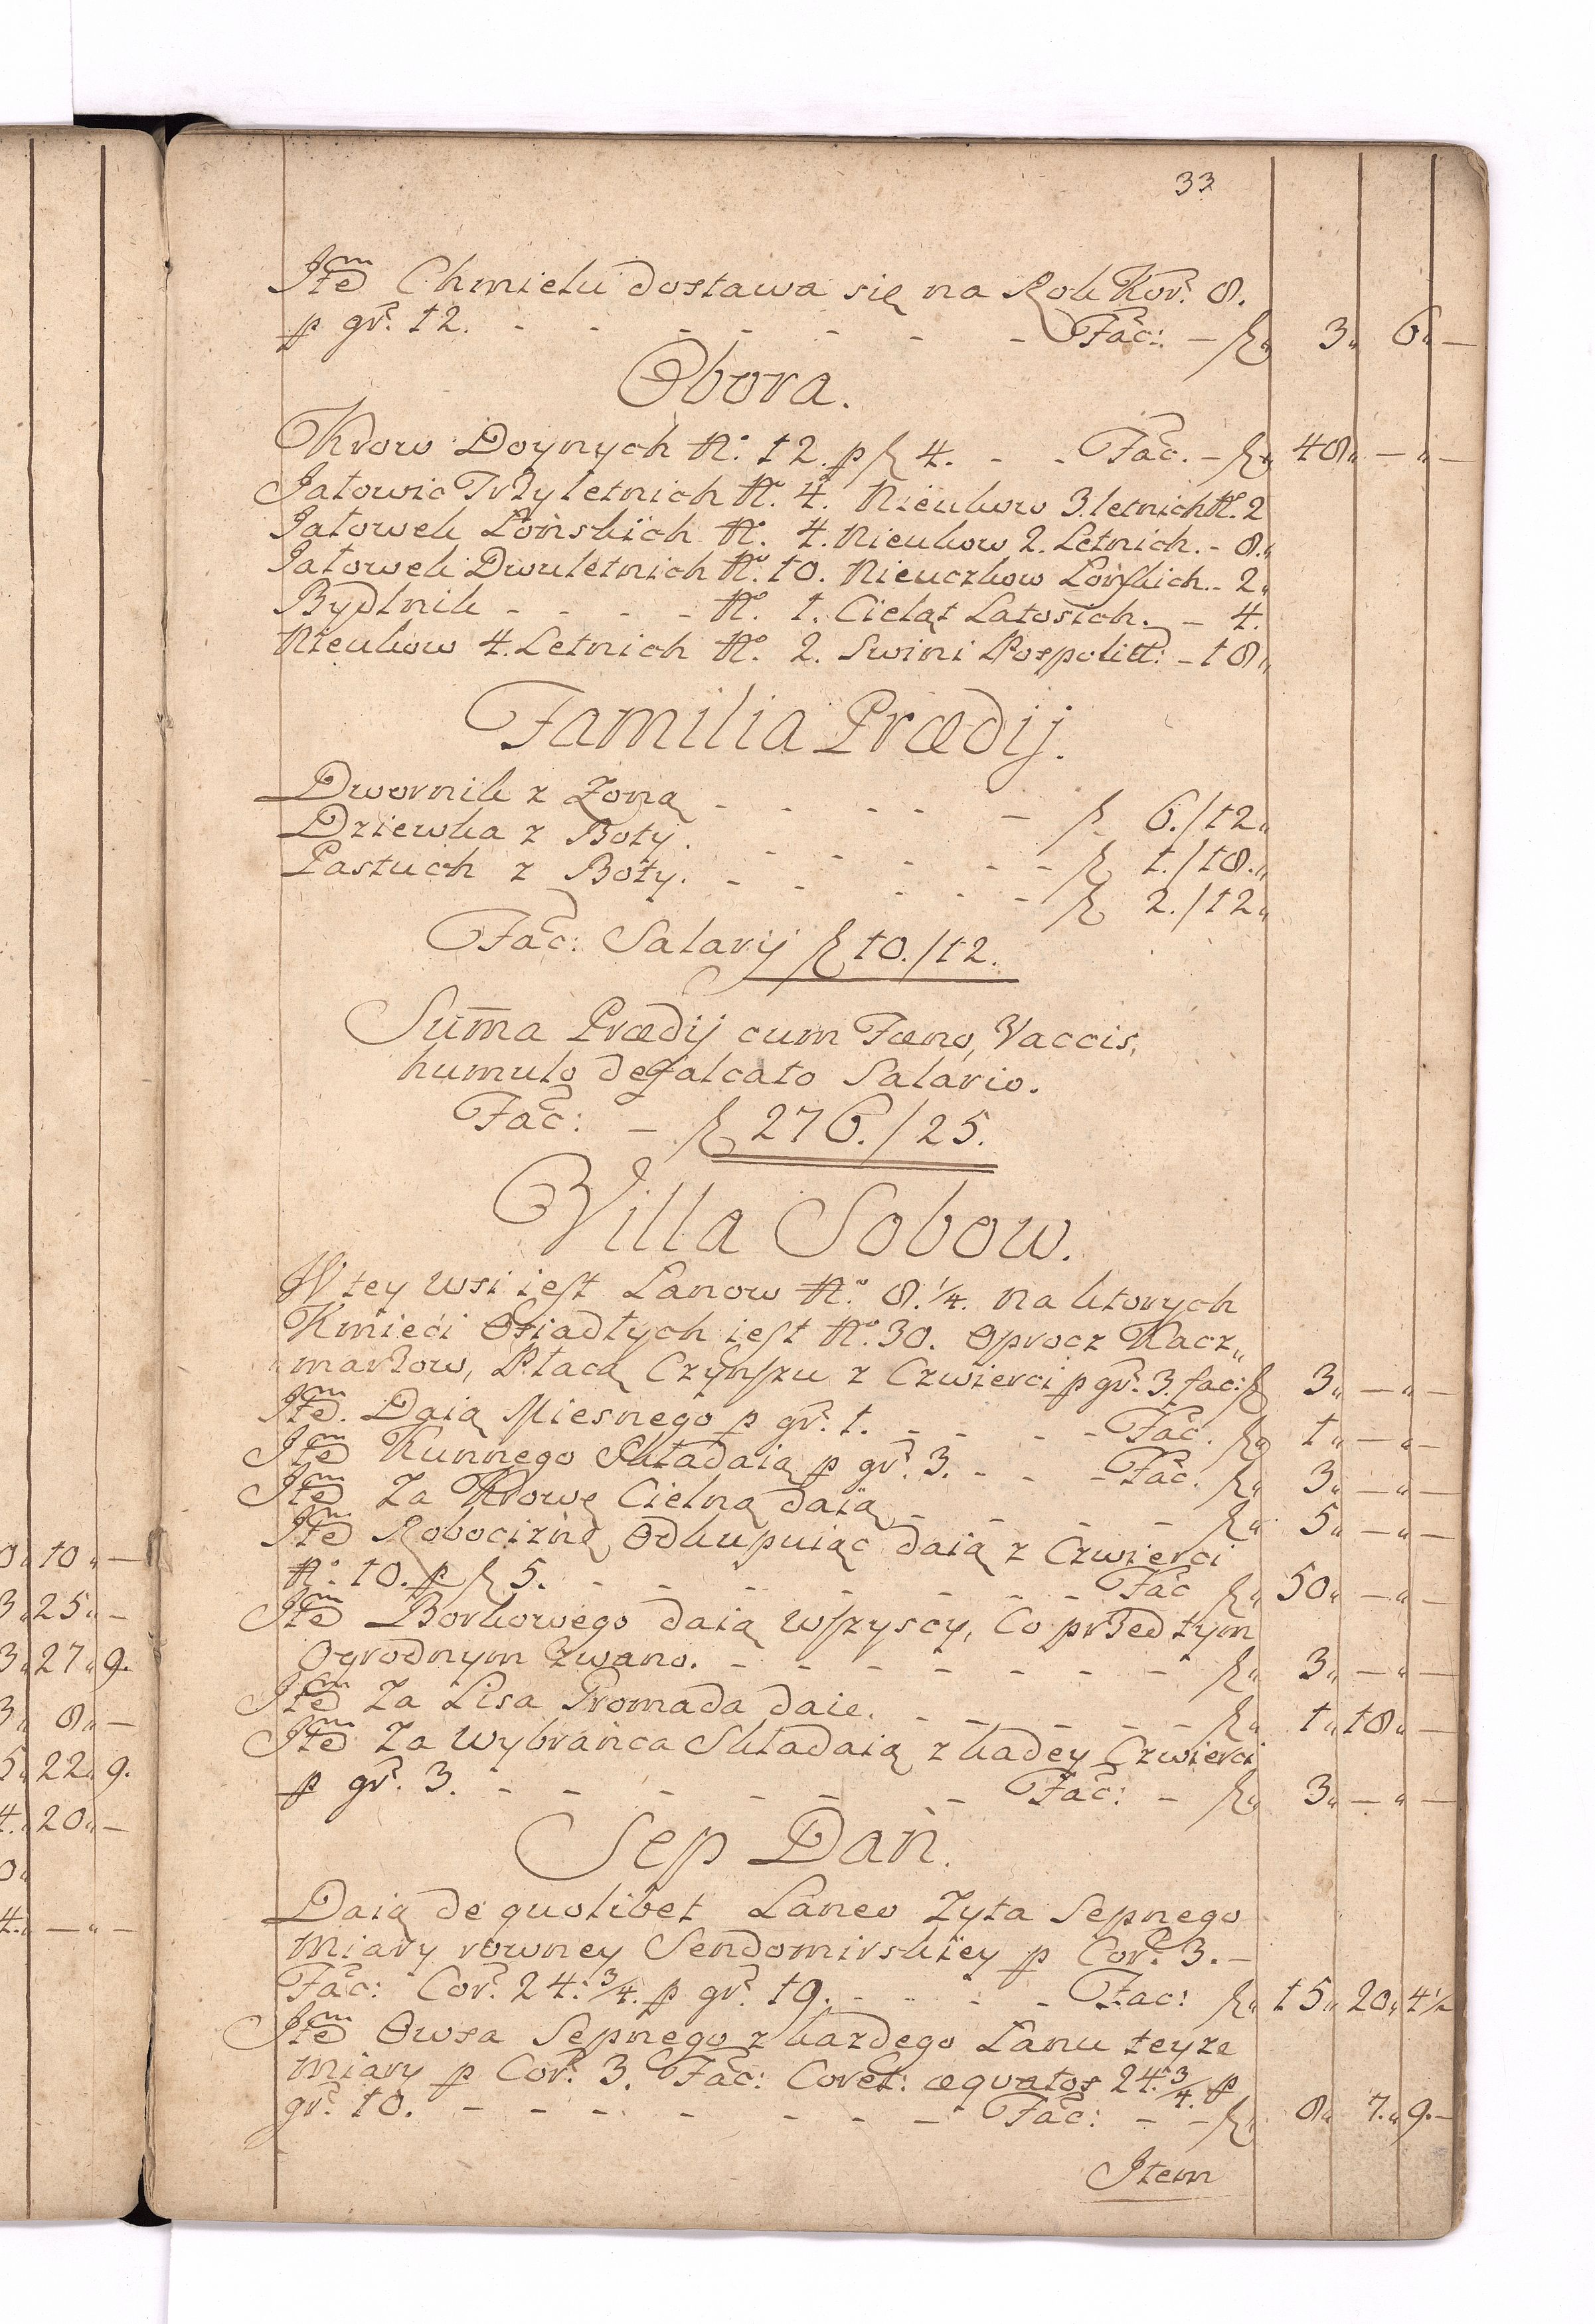 33
Itē Chmielu dostawa się na Rok Kor. 8.
p gr. 12. - - - - - - - Fac: - f 3 " 6 " -
Obora.
Krow Doynych No. 12. p f 4. - - Fac. - f 48 " - " -
Jałowic Trzyletnich No. 4. Nieukow 3. letnich No. 2
Jałowek Łońskich No. 4. Nieukow 2. Letnich. - 8.
Jałowek Dwuletnich No. 10. Nieuczkow Łońskich. - 2
Bydlnik - - - - No. 1. Cieląt Latosich. - 4.
Nieukow 4. Letnich No. 2. Swini Pospolitt: - 18
Familia Prædij.
Dwornik z Zoną - - - - - f 6./12
Dziewka z Boty. - - - - - f 1./18.
Pastuch z Boty. - - - - - f 2./12
Fac: Salarij f 10./12.
Sum̄a Prædij cum Fœno, Vaccis,
humulo defalcato Salario.
Fac: - f 276./25.
Villa Sobow.
W tey wsi iest Lanow No. 8.¼. na ktorych
Kmieci Osiadłych iest No. 30. Oprocz Kacz„
marzow, Płacą Czynszu z Czwierci p gr. 3. fac: f 3 " - " -
Itē. Daią Miesnego p gr. 1. - - - - Fac. f 1 " - " -
Itē Kunnego Składaią p gr. 3. - - - Fac. f 3 " - " -
Itē Za Krowę Cielną daią - - - - - f 5 " - " -
Itē Robociznę Odkupuiąc daią z Czwierci
No. 10. p f 5. - - - - - - - Fac f 50 " - " -
Itē Borkowego daią wszyscy, Co przed tym
Ogrodnym zwano. - - - - - - - f 3 " - " -
Itē Za Lisa Gromada daie. - - - - - f 1 " 18 " -
Itē Za Wybrańca Składaią z kadey Czwierci
p gr. 3. - - - - - - - Fac: - f 3 " - " -
Sep Dań.
Daią de quolibet Laneo Zyta Sepnego
Miary rowney Sendomirskiey p Cor. 3. -
Fac: Cor. 24.¾. p gr. 19. - - - - Fac: f 15 " 20 " 4½
Itē Owsa Sepnego z kazdego Lanu teyze
Miary p Cor. 3. Fac: Coret: æquatos 24.¾. p
gr. 10. - - - - - - - - Fac: - - f 8 " 7 " 9. -
Item
10 " -
3 " 25 " -
3 " 27 " 9.
3 " 8 " -
5 " 22 " 9.
4 " 20 " -
4 " - " -